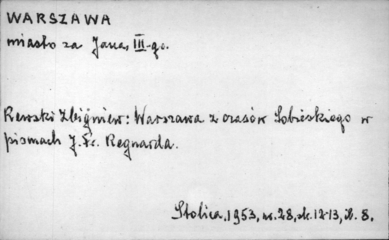 WARSZAWA
miasto za Jana III-go.
Rewski Zbigniew: Warszawa z czasów Sobieskiego w
pismach J. Fr. Regnarda.
Stolica, 1953, nr. 28, st. 12-13, il. 8.